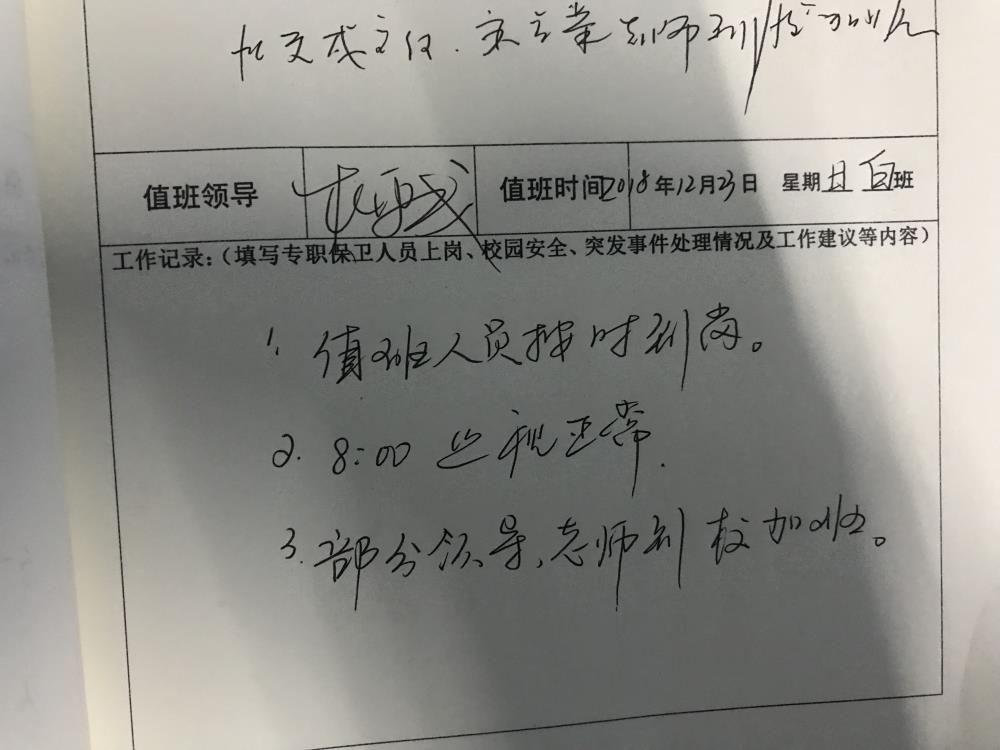 成主任、宋立业老师到校加班
值班领导 值班时间2018年12月23日 星期日白班
工作记录：（填写专职保卫人员上岗、校园安全、突发事件处理情况及工作建议等内容）
1. 值班人员按时到岗。
2. 8:00 巡视正常.
3. 部分领导、老师到校加班。